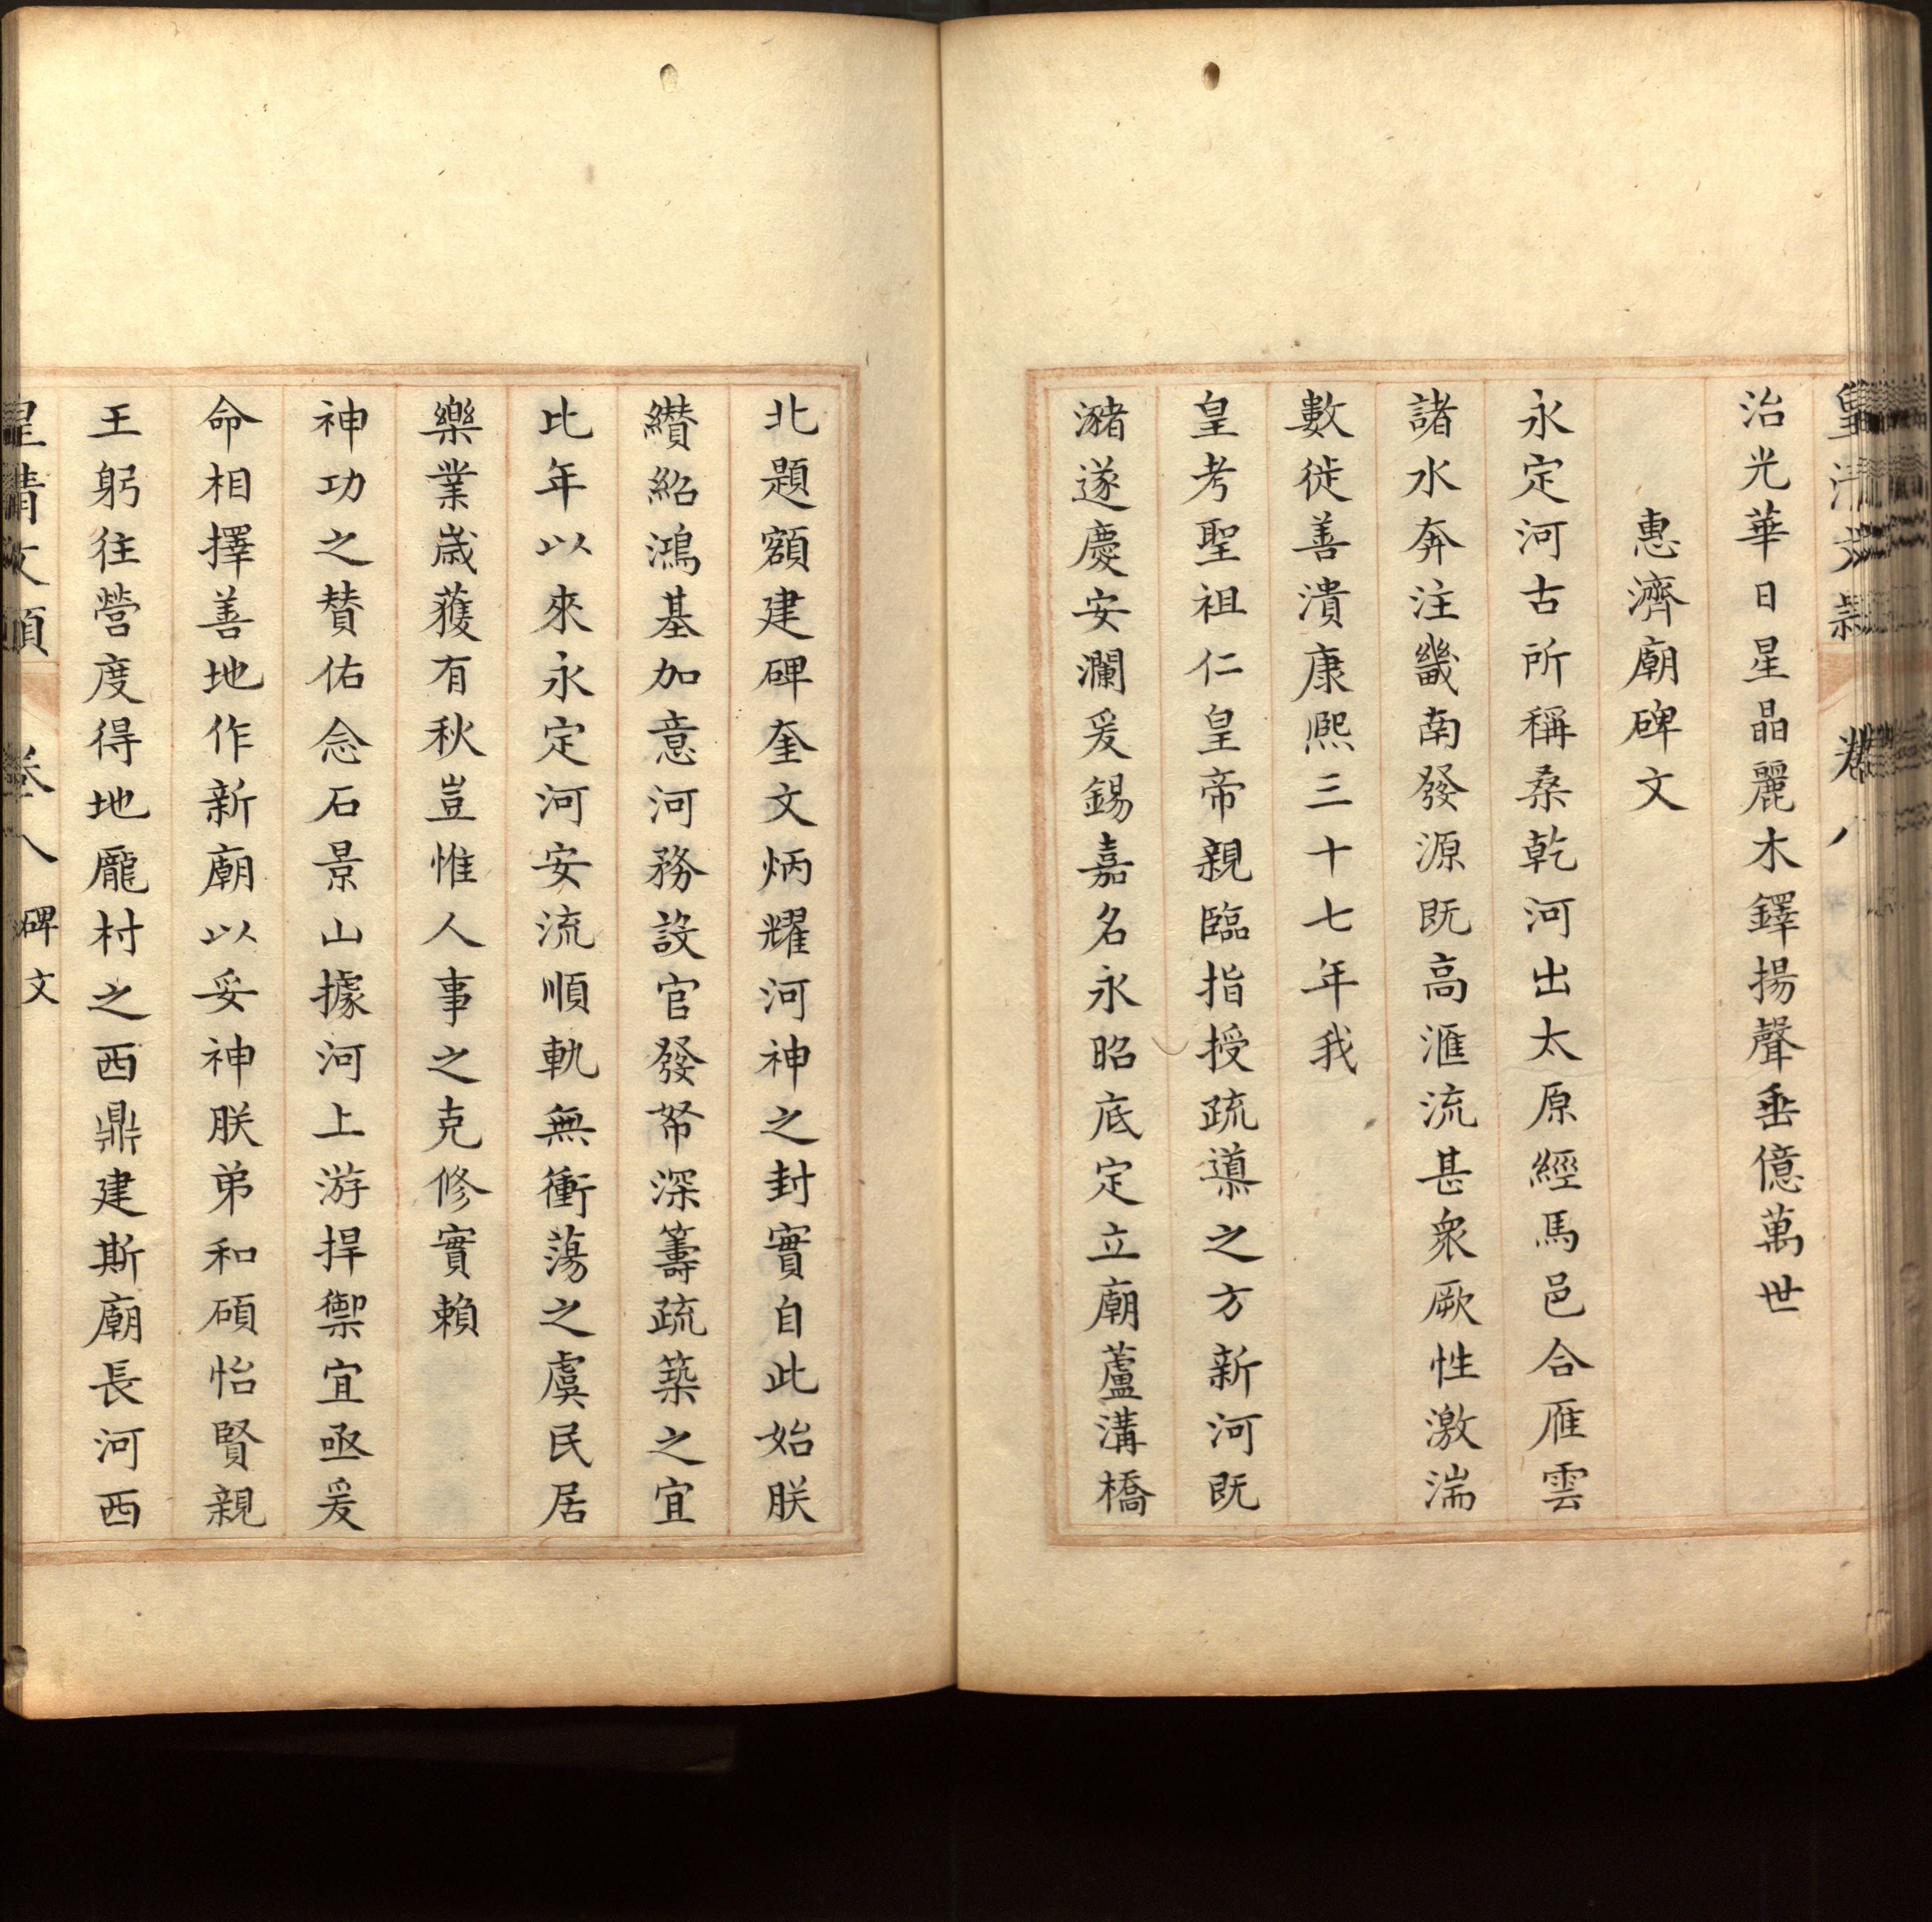 皇清文穎 卷八
治光華日星晶麗木鐸揚聲垂億萬世
惠濟廟碑文
永定河古所稱桑乾河出太原經馬邑合雁雲
諸水奔注畿南發源既高滙流甚衆厥性激湍
數徙善潰康熈三十七年我
皇考聖祖仁皇帝親臨指授疏導之方新河既
瀦遂慶安瀾爰錫嘉名永昭底定立廟蘆溝橋
北題額建碑奎文炳耀河神之封實自此始朕
纉紹鴻基加意河務設官發帑深籌疏築之宜
比年以來永定河安流順軌無衝蕩之虞民居
樂業歲獲有秋豈惟人事之克修實賴
神功之賛佑念石景山據河上游捍禦宜亟爰
命相擇善地作新廟以妥神朕弟和碩怡賢親
王躬往營度得地龐村之西鼎建斯廟長河西
皇清文穎 卷八 碑文